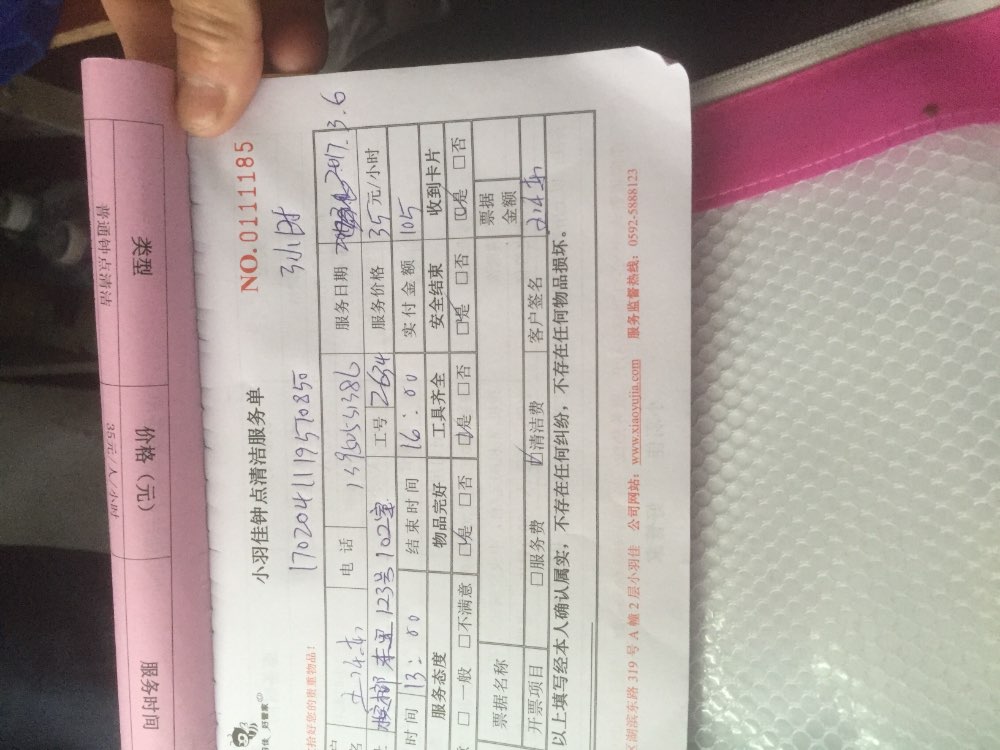 NO.0111185
小羽佳钟点清洁服务单
1702041119570850 3小时
拾好您的贵重物品!
电话 服务日期 2017.3.6
工号 2634 服务价格 35元/小时
123号102室
时间 13:00 结束时间 16:00 实付金额 105
服务态度 物品完好 工具齐全 安全结束 收到卡片
□一般 □不满意 ☑是 □否 ☑是 □否 ☑是 □否 ☑是 □否
票据名称 票据金额
开票项目 □服务费 ☑清洁费 客户签名
以上填写经本人确认属实,不存在任何纠纷,不存在任何物品损坏。
区湖滨东路 319 号 A 幢 2 层小羽佳 公司网站:www.xiaoyujia.com 服务监督热线:0592-5888123
类型 价格(元) 服务时间
普通钟点清洁 35元/人/小时